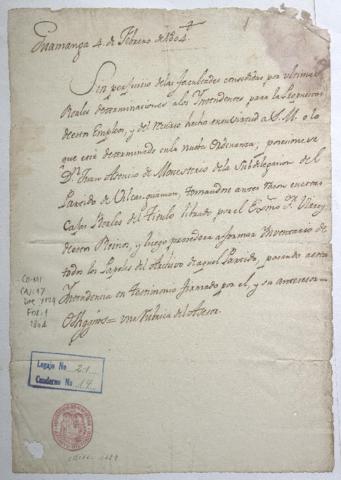 Guamanga 4. de Febrero de 1804.
Sin perjuicio de las facultades concedidas por ultimas
Reales determinaciones a los Intendentes para la
de estos Empleos, y del recurso hecho en su virtud a S.M. o lo
que está determinado en la nueva Ordenanza; posesionese
Dn. Juan Asencio de Monasterio de la Subdelegacion del
Partido de Vilcashuaman, tomandose antes razon en estas
Caxas Reales del Titulo librado por el Exmo. Sr. Virrey
de estos Reinos, y luego procedera a formar Inventario de
todos los Papeles del Archivo de aquel Partido, pasando a esta
Intendencia un testimonio firmado por el, y su antecesor=
O'Higgins= una rubrica del Asesor.
CAJ: 17
DOC
FOL: 1
1804
Legajo No 21
Cuaderno No 14